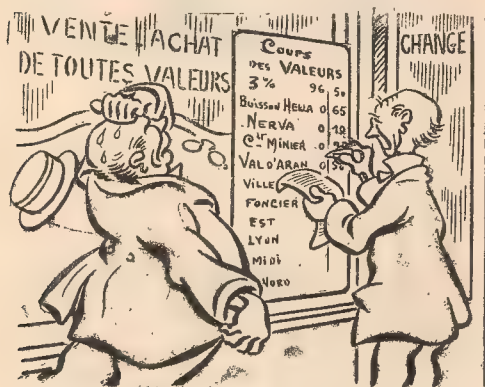 VENTE ACHAT
DE TOUTES VALEURS
Cours
DES VALEURS
3% 96,50
Buisson Hella 0 65
NERVA 0
Cie MINIER 0
VAL D'ARAN 0
VILLE
FONCIER
EST
LYON
MIDI
NORD
CHANGE